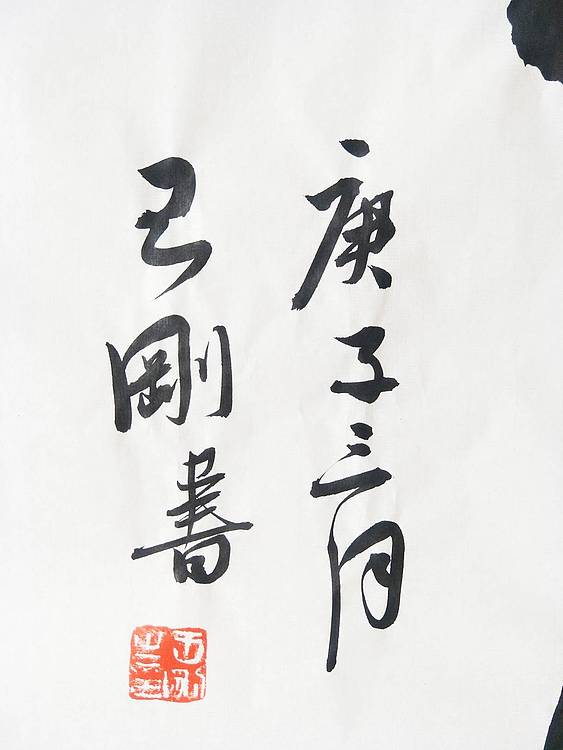 庚子三月
己剛書